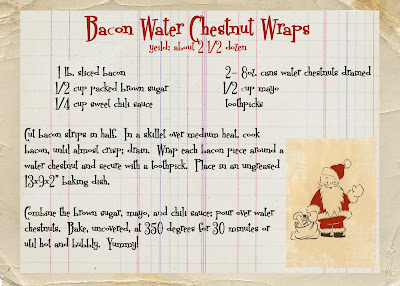 Bacon Water Chestnut Wraps
yeild: about 2 1/2 dozen
1 lb. sliced bacon
1/2 cup packed brown sugar
1/4 cup sweet chili sauce
2- 8oz. cans water chestnuts drained
1/2 cup mayo
toothpicks
Cut bacon strips in half. In a skillet over medium heat, cook
bacon, until almost crisp; drain. Wrap each bacon piece around a
water chestnut and secure with a toothpick. Place in an ungreased
13x9x2" baking dish.
Combine the brown sugar, mayo, and chili sauce; pour over water
chestnuts. Bake, uncovered, at 350 degrees for 30 minutes or
util hot and bubbly. Yummy!